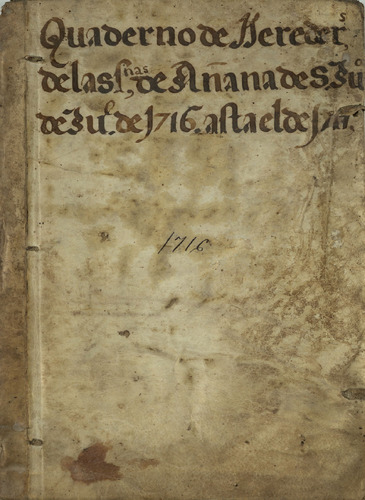 Quaderno de Hereder^s
de las S^nas de Añana de S. Ju^o
de Ju^o de 1716. asta el de
1716